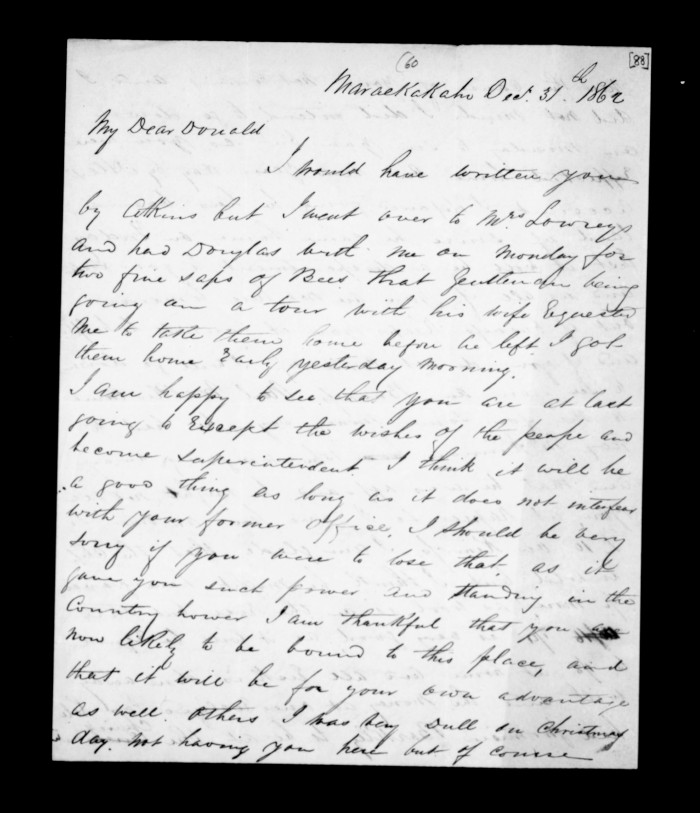 (60
[88]
Maraekakaho Decr. 31.th 1862
My Dear Donald
I would have written you
by Atkins but I went over to Mrs Lowreys
and had Douglas with me on Monday for
two fine saps of Bees that Gentleman being
going on a tour with his wife Equested
me to take them home before he left I got
them home Early yesterday morning.
I am happy to see that you are at last
going to Except the wishes of the peope and
become superintendent I think it will be
a good thing as long as it does not interfear
with your former office, I should be very
sorry if you were to lose that as it
gave you such power and standing in the
Country hower I am thankful that you are
now likely to be bound to this place, and
that it will be for your own advantage
as well others I was very Dull on Christmas
day. not having you here but of course